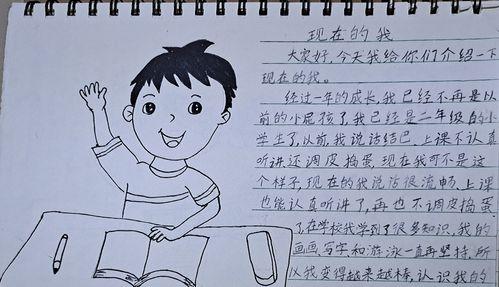 现在的我
大家好,今天我给你们介绍一下
现在的我。
经过一年的成长,我已经不再是以
前的小屁孩了,我已经是二年级的小
学生了,以前,我说话结巴,上课不认真
听讲还调皮捣蛋现在我可不是这
个样子,现在的我说话很流畅,上课
也能认真听讲了,再也不调皮捣蛋
了,在学校我学到了很多知识,我的
画画,写字和游泳一直再坚持,所
以我变得越来越棒,认识我的